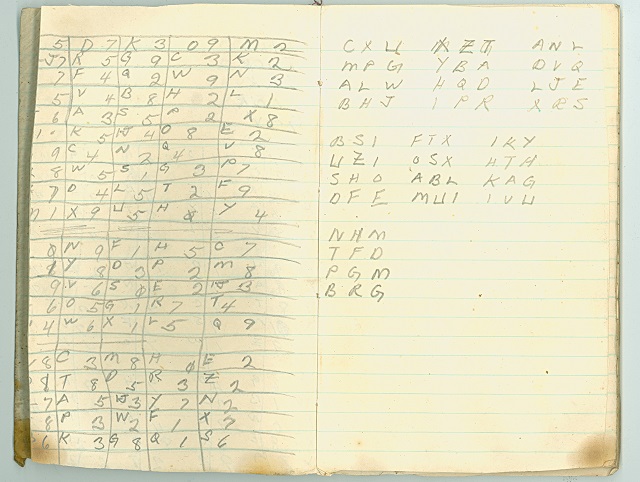 5 D 7 K 3 0 9 M 2
J 7 R 5 G 9 C 3 K 2
7 F 4 Q 2 W 9 N 3
5 V 4 B 8 H 2 L 1
6 A 3 S 5 P 2 X 8
K 5 4 O 8 E 2
9 C 4 N 2 Q 4 V 8
8 W 5 S 1 G 3 P 7
7 D 4 L 5 T 2 F 9
1 X 9 U 5 H 0 Y 4
N 9 F 1 H 5 C 7
Y 8 D 3 P 2 M 8
9 V 6 S 0 E 2 3
6 O 5 G 1 R 7 T 4
4 W 6 X 1 L 5 Q 9
8 C 3 M 8 H 0 E 2
8 T 8 D 5 R 3 Z 2
7 A 5 3 Y 7 N 2
8 P 3 W 2 F 1 X 7
6 K 3 G 8 Q 1 S 6
C X U Z J A N L
M P G Y B A D V Q
A L W H Q D L J E
B H J I P R X S
B S I F T X I K Y
U Z I O S X H T H
S H O A B L K A G
D F E M U I I V U
N H M
T F D
P G M
B R G